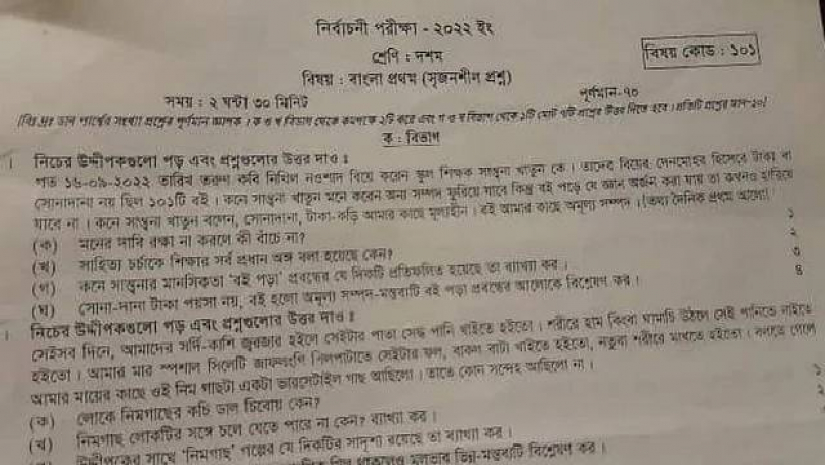 নির্বাচনী পরীক্ষা - ২০২২ ইং
শ্রেণি : দশম
বিষয় কোড : ১০১
বিষয় : বাংলা প্রথম (সৃজনশীল প্রশ্ন)
সময় : ২ ঘন্টা ৩০ মিনিট
পূর্ণমান-৭০
ক : বিভাগ
নিচের উদ্দীপকগুলো পড় এবং প্রশ্নগুলোর উত্তর দাও :
গত ১৬-০৯-২০২২ তারিখ তরুণ কবি নিখিল নওশাদ বিয়ে করেন স্কুল শিক্ষক সান্ত্বনা খাতুন কে । তাদের বিয়ের দেনমোহর হিসেবে টাকা বা
সোনাদানা নয় ছিল ১০১টি বই । কনে সান্ত্বনা খাতুন মনে করেন অন্য সম্পদ ফুরিয়ে যাবে কিন্তু বই পড়ে যে জ্ঞান অর্জন করা যায় তা কখনও হারিয়ে
যাবে না । কনে সান্ত্বনা খাতুন বলেন, সোনাদানা, টাকা-কড়ি আমার কাছে মূল্যহীন । বই আমার কাছে অমূল্য সম্পদ । (তথ্য দৈনিক প্রথম আলো)
(ক) মনের দাবি রক্ষা না করলে কী বাঁচে না? ১
(খ) সাহিত্য চর্চাকে শিক্ষার সর্ব প্রধান অঙ্গ বলা হয়েছে কেন? ২
(গ) কনে সান্ত্বনার মানসিকতা 'বই পড়া' প্রবন্ধের যে দিকটি প্রতিফলিত হয়েছে তা ব্যাখ্যা কর । ৩
(ঘ) সোনা-দানা টাকা পয়সা নয়, বই হলো অমূল্য সম্পদ-মন্তব্যটি বই পড়া প্রবন্ধের আলোকে বিশ্লেষণ কর । ৪
নিচের উদ্দীপকগুলো পড় এবং প্রশ্নগুলোর উত্তর দাও :
সেইসব দিনে, আমাদের সর্দি-কাশি জ্বরজার হইলে সেইটার পাতা সেদ্ধ পানি খাইতে হইতো । শরীরে হাম কিংবা ঘামাচি উঠলে সেই পানিতে নাইতে
হইতো । আমার মার স্পেশাল সিলেটি নিমপাটাতে সেইটার ফল, বাকল বাটা খাইতে হইতো, নতুবা শরীরে মাখতে হইতো । বলতে গেলে
আমার মায়ের কাছে ওই নিম গাছটা একটা ভারসেটাইল গাছ আছিলো । তাতে কোন সন্দেহ আছিলো না ।
(ক) লোকে নিমগাছের কচি ডাল চিবোয় কেন? ১
(খ) নিমগাছ লোকটির সঙ্গে চলে যেতে পারে না কেন? ব্যাখ্যা কর । ২
উদ্দীপকের সাথে 'নিমগাছ' গল্পের যে দিকটির সাদৃশ্য রয়েছে তা ব্যাখ্যা কর ।
ভিন্ন-মন্তব্যটি বিশ্লেষণ কর ।